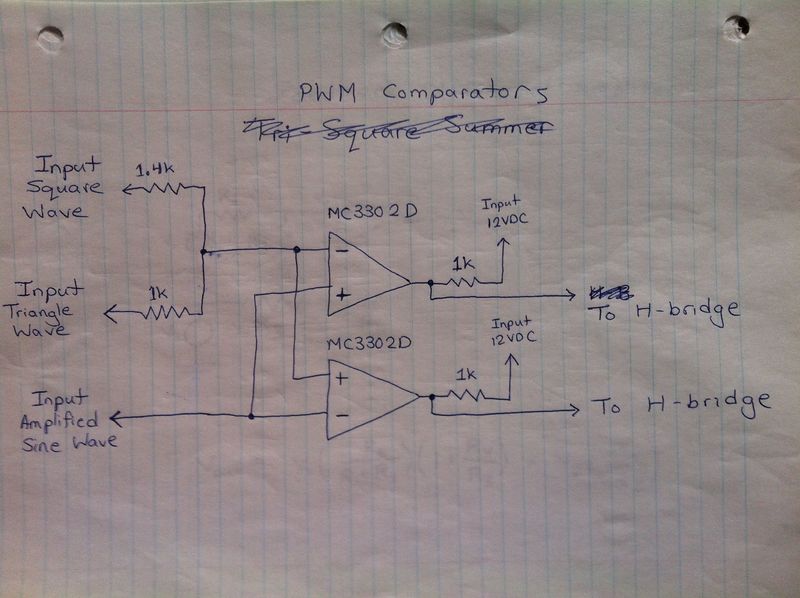 PWM Comparators
Tri Square Summer
Input
Square
Wave
1.4k
MC3302D
Input
12VDC
-
+
1k
Input
Triangle
Wave
1k
To H-bridge
MC3302D
Input
12VDC
+
-
1k
To H-bridge
Input
Amplified
Sine Wave